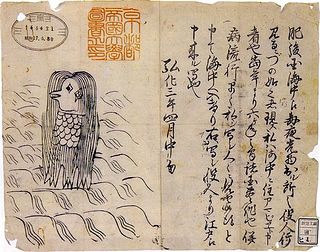 肥後国海中え毎夜光物出ル所之役人行
見るニづの如く者現ス私ハ海中ニ住アマビヱト申
者也當年より六ケ年之間諸国豊作也併
病流行早々私シ写シ人々ニ見セ候得と
申て海中へ入けり右ハ写シ役人より江戸え
申来ル写也
弘化三年四月中旬
京都
帝國大學
圖書之印